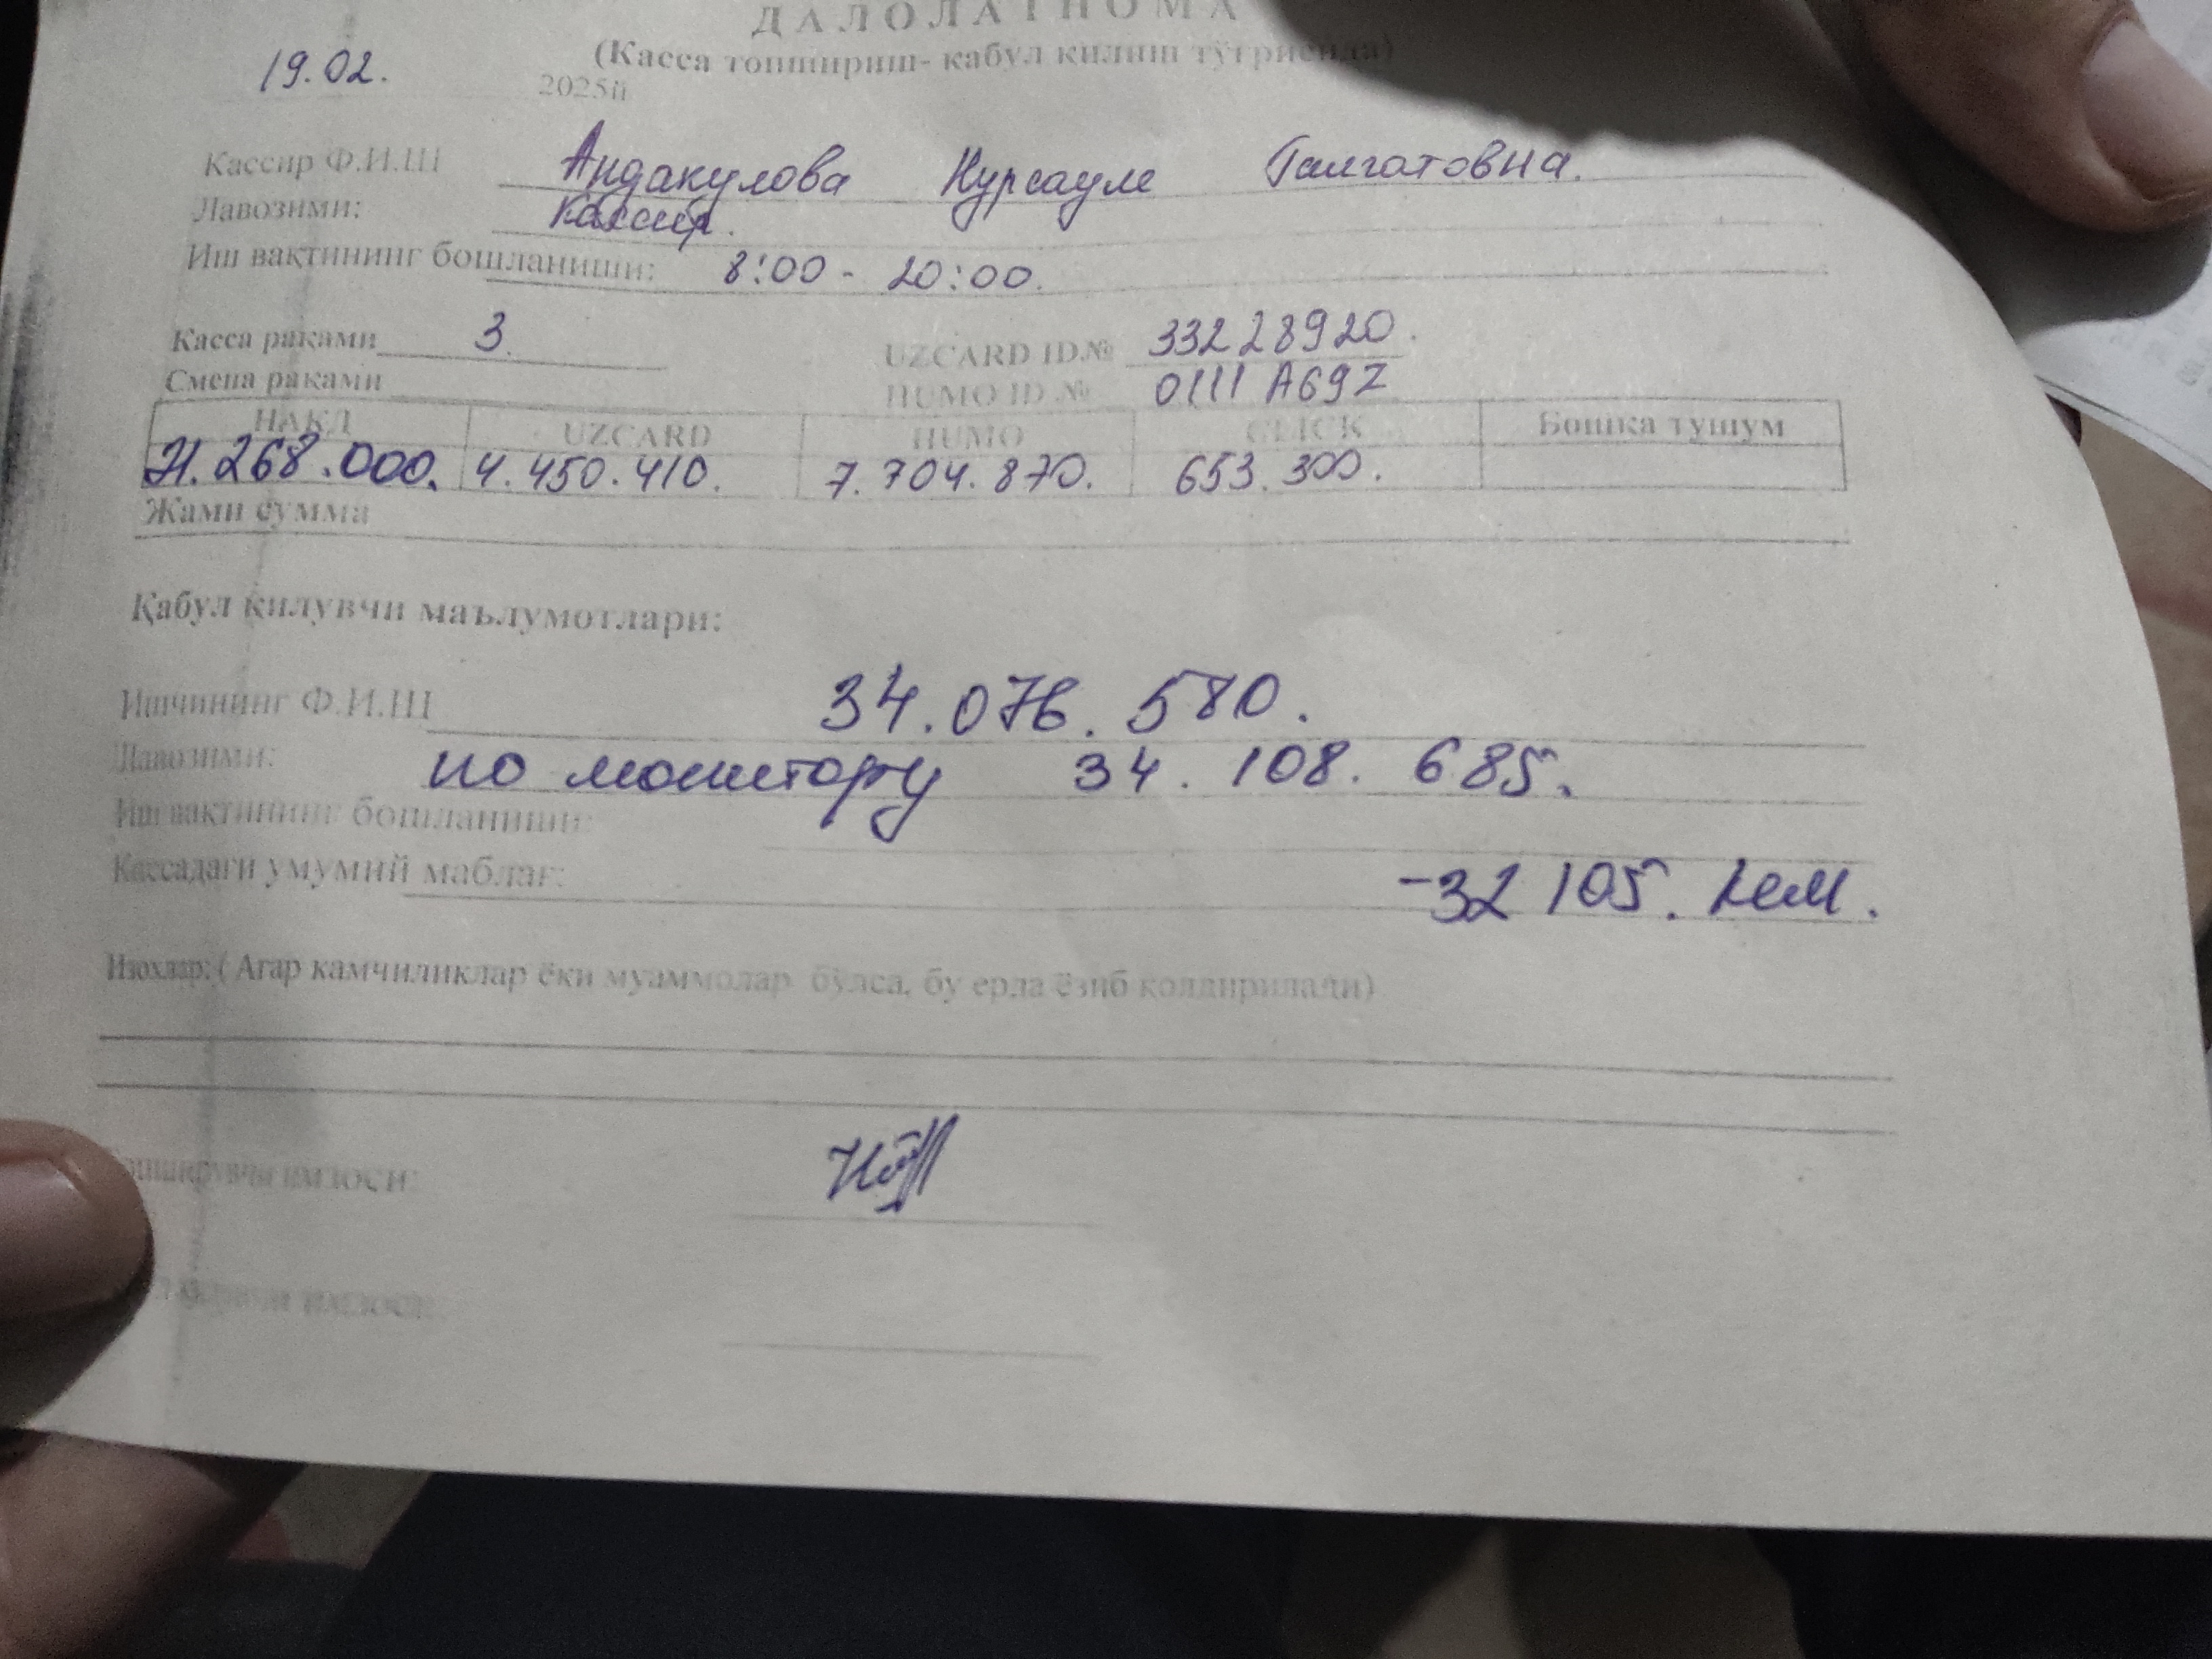 ДАЛОЛАТНОМА
(Касса топшириш- кабул килиш тўғрисида)
19.02. 2025й
Кассир Ф.И.Ш Андакулова Нурсауле Талгатовна.
Лавозими: Кассир.
Иш вақтининг бошланиши: 8:00 - 20:00.
Касса раками 3. UZCARD ID.№ 33228920.
Смена раками HUMO ID № 0111A69Z
НАКД UZCARD HUMO CLICK Бошка тушум
21.268.000. 4.450.410. 7.704.870. 653.300.
Жами сумма
Қабул қилувчи маълумотлари:
Ишчининг Ф.И.Ш 34.076.580.
Лавозими: по монитору 34.108.685.
Иш вақтининг бошланиши:
Кассадаги умумий маблағ: -32105. кем.
Изохлар: ( Агар камчиликлар ёки муаммолар бўлса, бу ерда ёзиб қолдирилади)
имзоси:
имзоси: